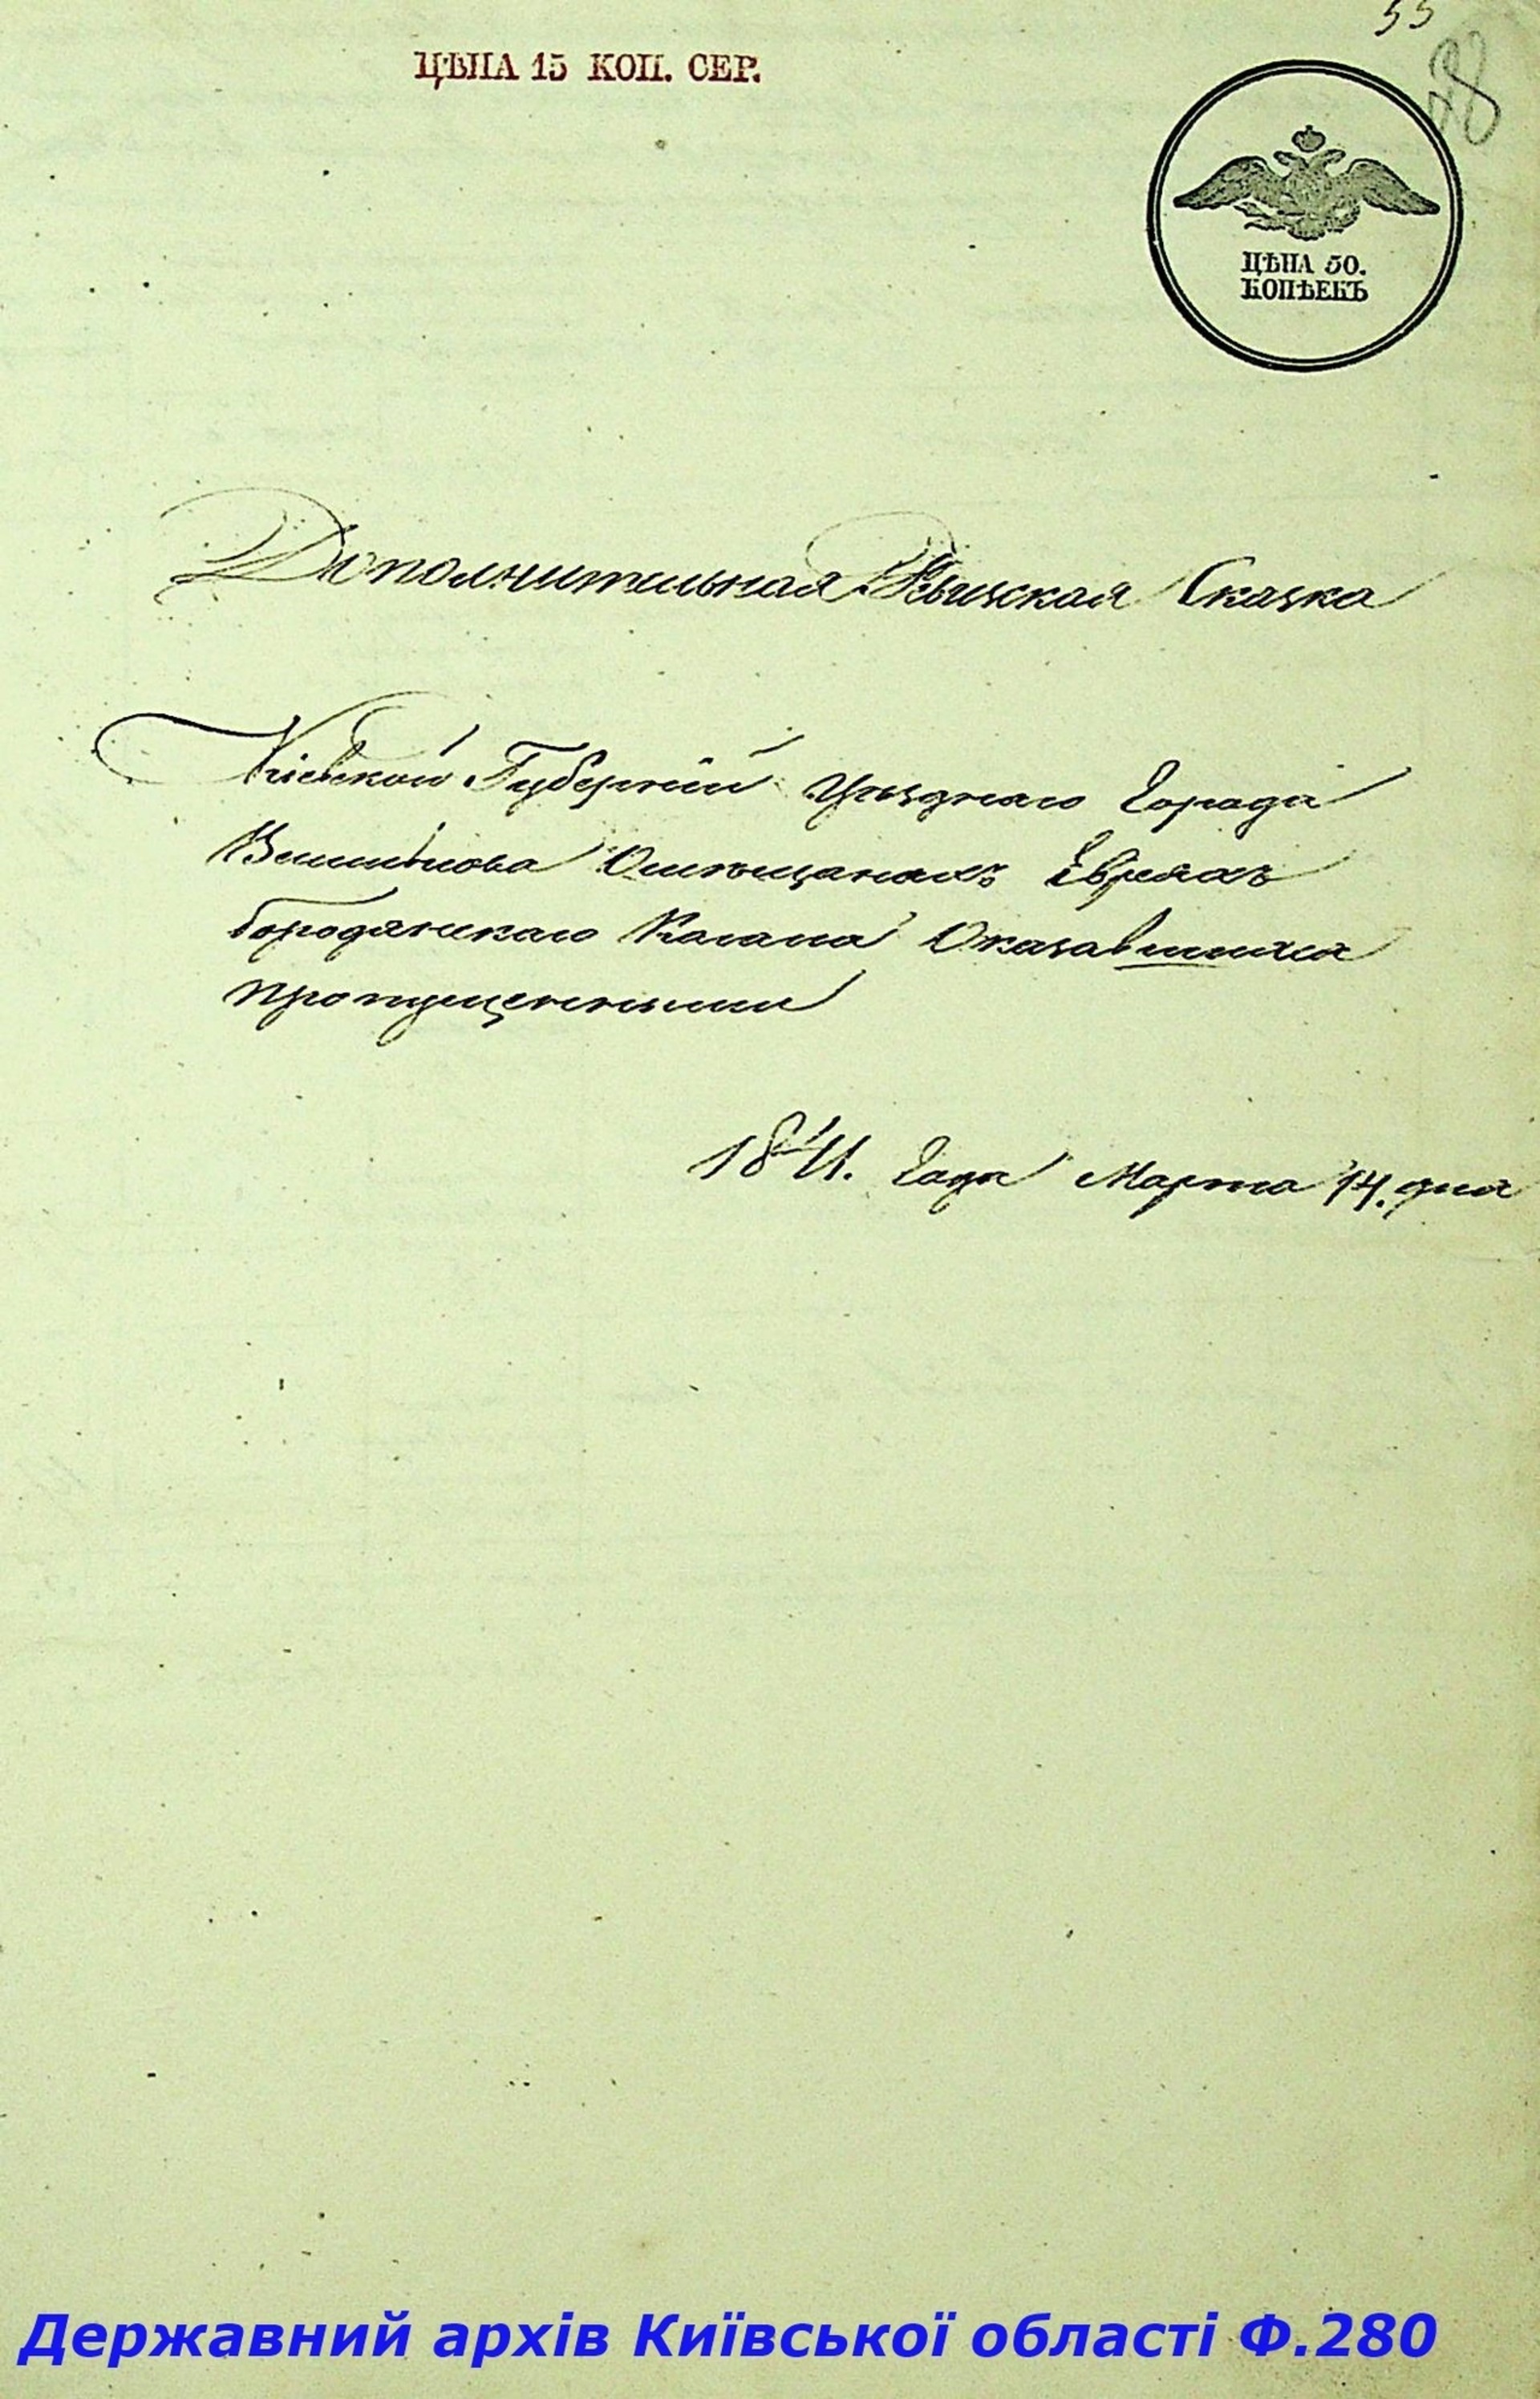 55
ЦѢНА 15 КОП. СЕР.
ЦѢНА 50.
КОПѢЕКЪ
Дополнительная Ревизская Сказка
Кіевской Губерніи Уѣзднаго Города
Василькова Омѣщанахъ Евреяхъ
Бородянскаго Кагала Оказавшихся
пропущенными
1841. Года Марта 14. дня
Державний архів Київської області Ф.280